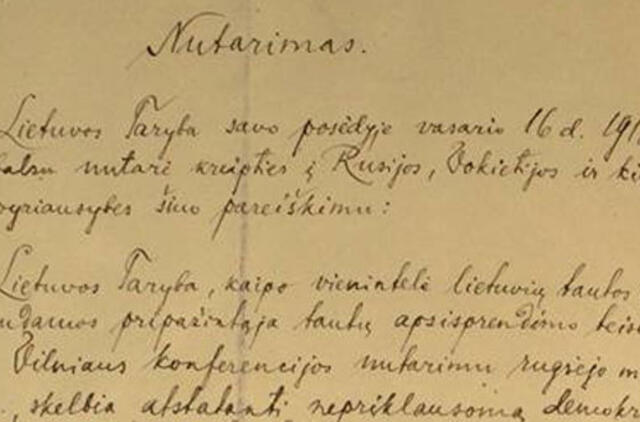 Nutarimas.
Lietuvos Taryba savo posėdyje vasario 16 d. 191
balsu nutarė kreipties į Rusijos, Vokietijos ir ki
vyriausybes šiuo pareiškimu:
Lietuvos Taryba, kaipo vienintelė lietuvių tautos
mdamos pripažintąja tautų apsisprendimo teise
Vilniaus konferencijos nutarimu rugsėjo m
, skelbia atstatanti nepriklausomą demokr